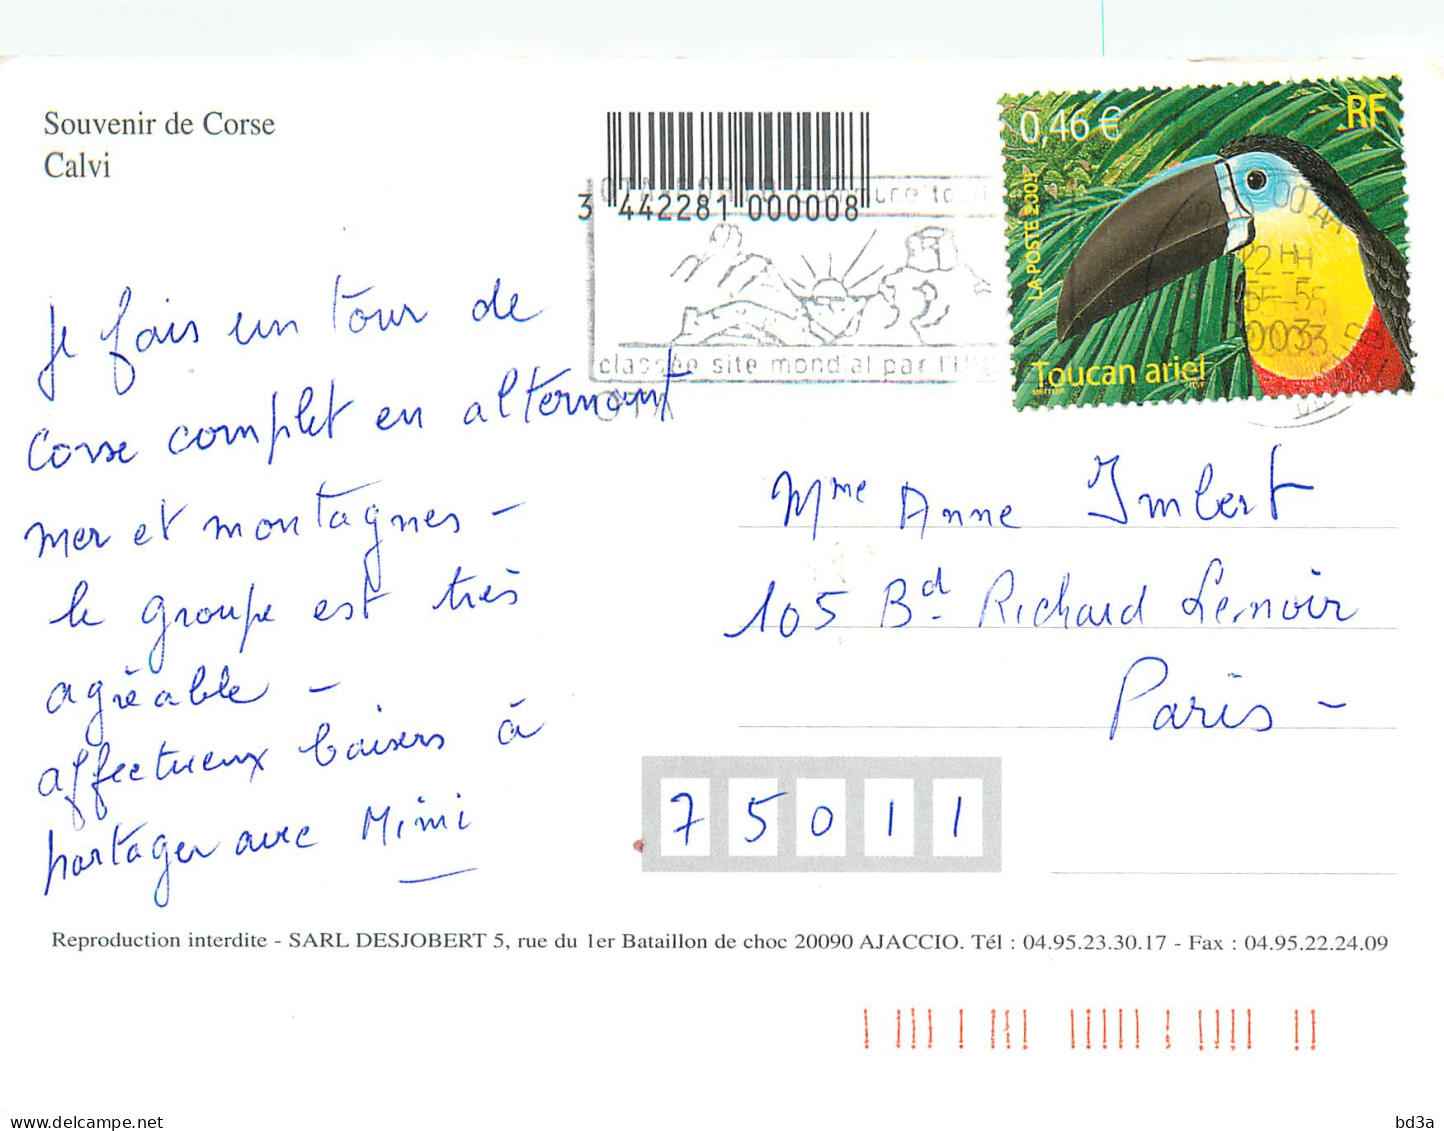 Souvenir de Corse
Calvi
3 442281 000008
0,46 €
RF
LA POSTE
Toucan ariel
classée site mondial par l'
Je fais un tour de
Corse complet en alternant
mer et montagnes -
le groupe est très
agréable -
affectueux baisers à
partager avec Mimi
Mme Anne Imbert
105 Bd Richard Lenoir
Paris -
75011
Reproduction interdite - SARL DESJOBERT 5, rue du 1er Bataillon de choc 20090 AJACCIO. Tél : 04.95.23.30.17 - Fax : 04.95.22.24.09
bd3a